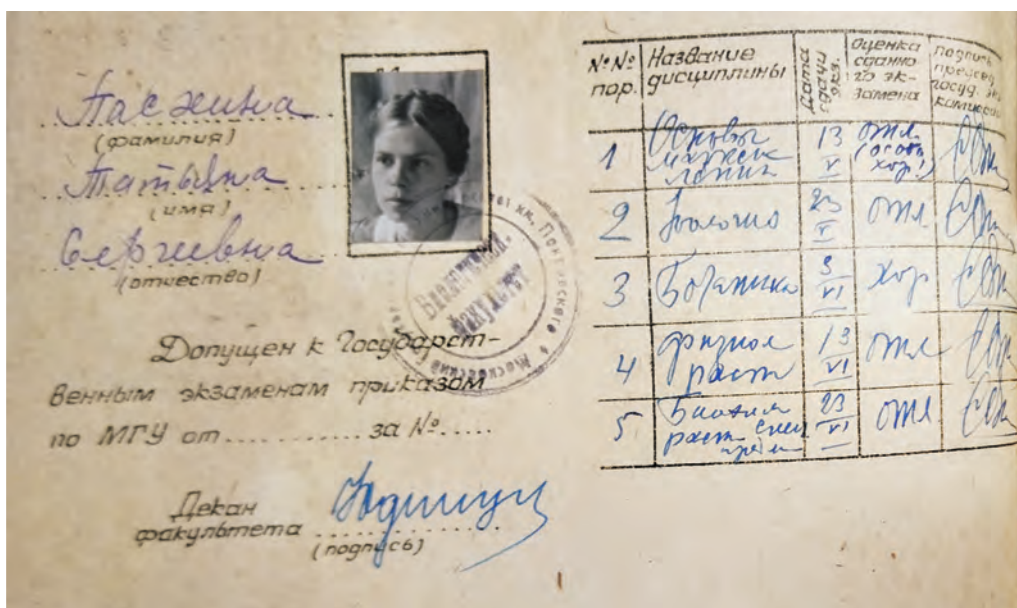 Пасхина
(фамилия)
Татьяна
(имя)
Сергеевна
(отчество)
Биологический
факультет
Допущен к Государст-
венным экзаменам приказом
по МГУ от ............ за № .....
Декан
факультета ............
(подпись)
№№ пор. Название дисциплины Дата сдачи экз. Оценка сданно-го эк-замена Подпись председ. госуд. экз. комиссии
1 Основы марксизма ленин 13 V отл. (особ. хор!)
2 Зоология 23 V отл
3 Ботаника 3 VI хор
4 Физиол раст 13 VI отл
5 Биохим раст. 23 VI отл